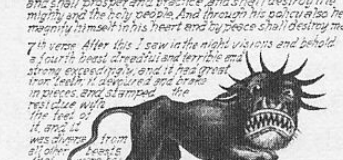 and shall prosper and practice, and shall destroy the
mighty and the holy people. And through his policy also he
magnify himself in his heart and by peace shall destroy ma
7th verse. After this I saw in the night visions and behold
a fourth beast dreadful and terrible and
strong exceedingly, and it had great
iron teeth, it devoured and brake
in pieces, and stamped the
residue with
the feet of
it, and it
was diverse from
all other beasts